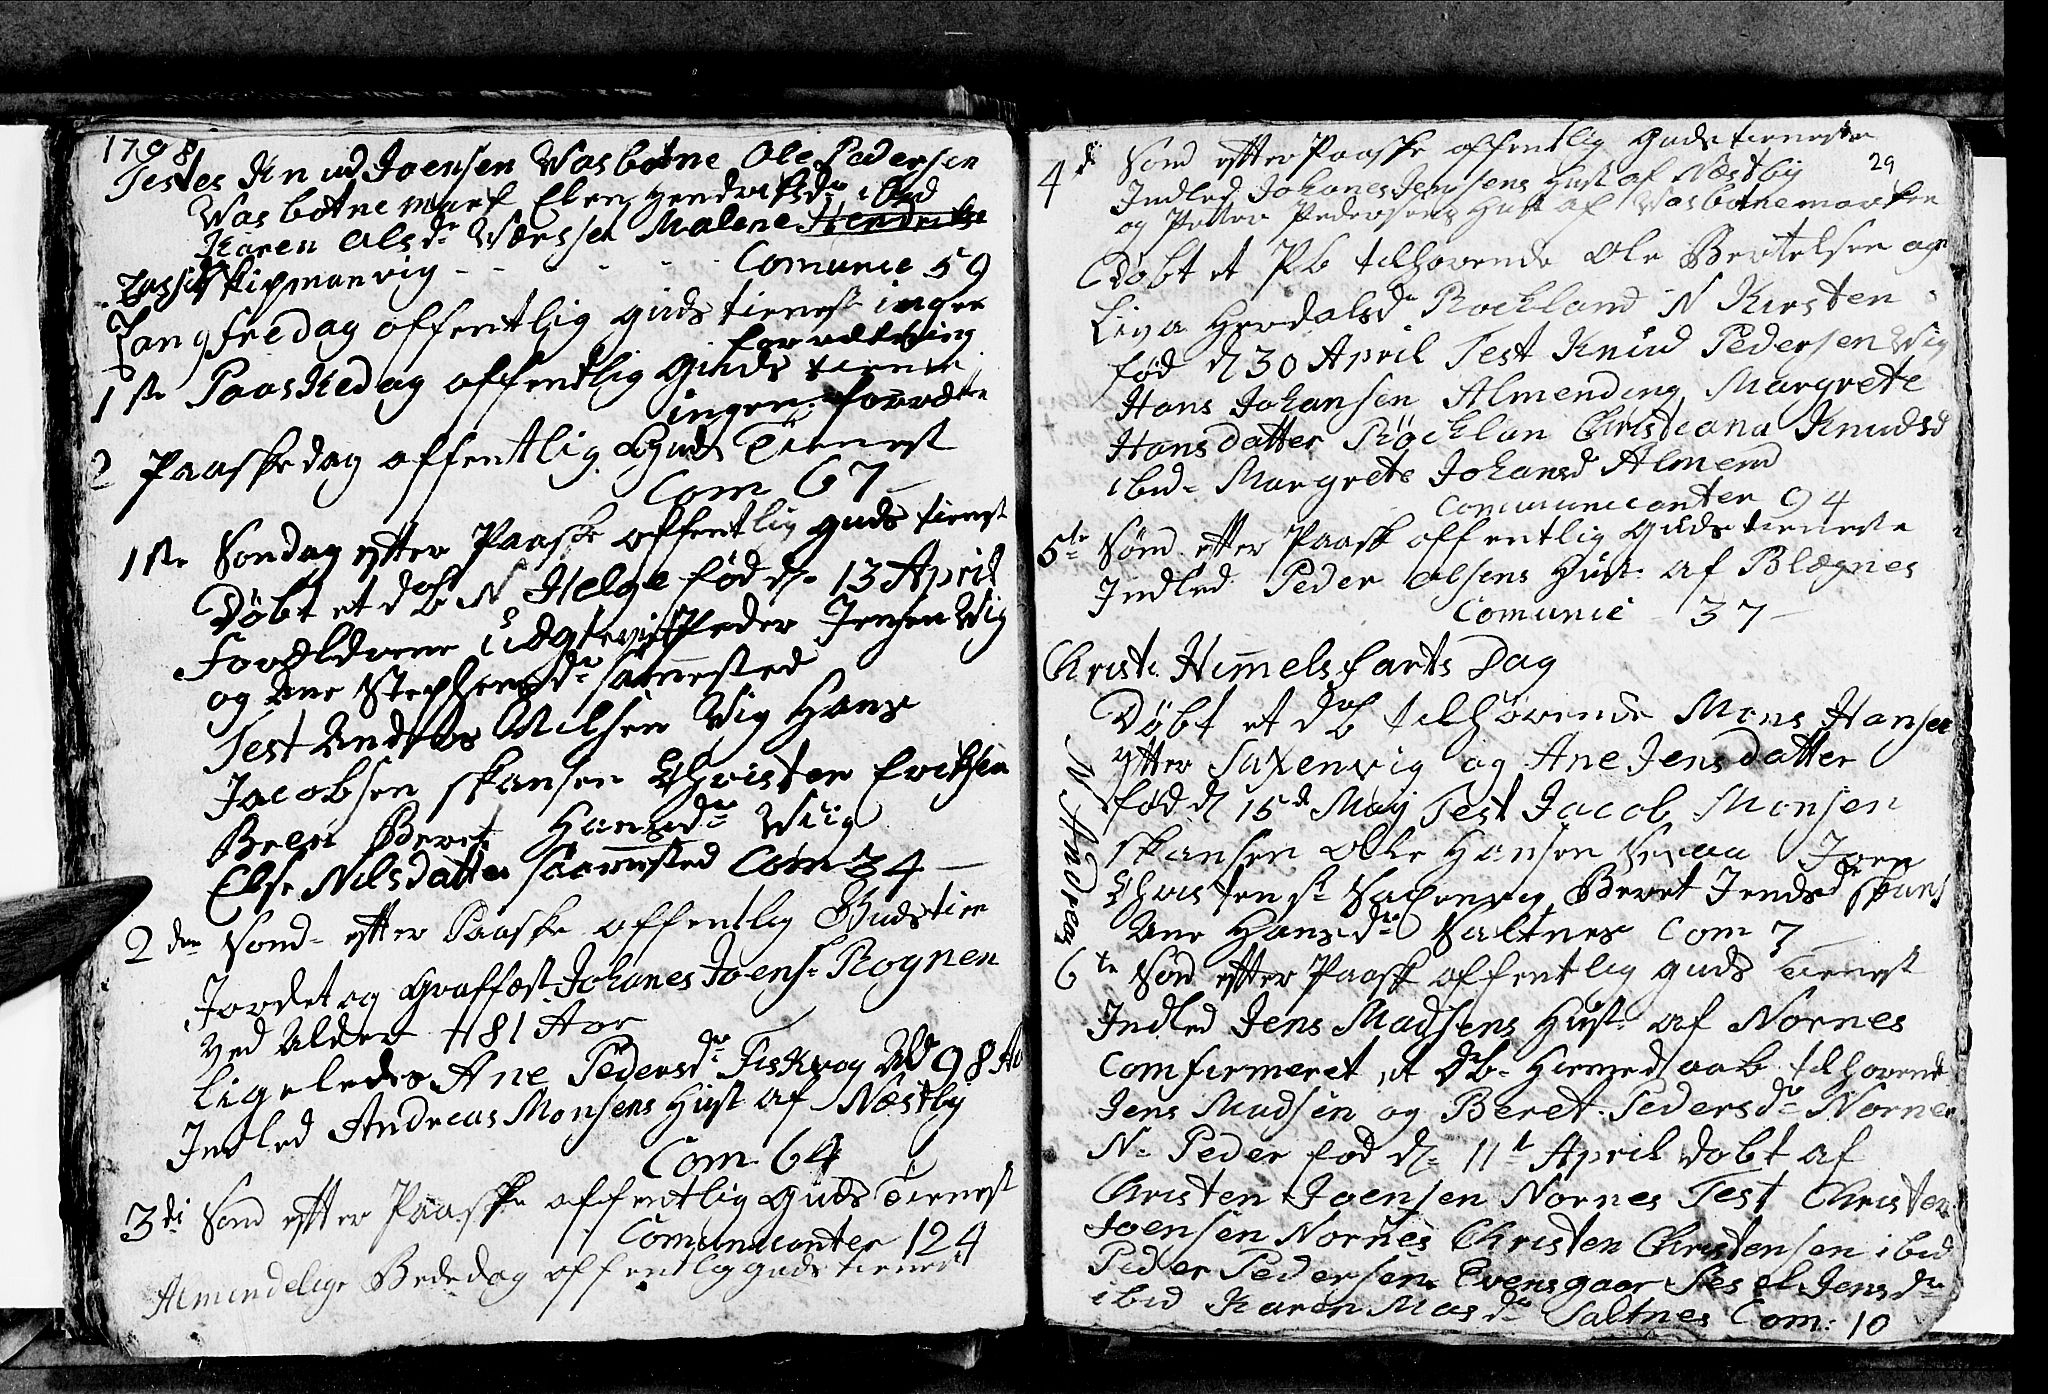 1798
Testes Knud Joensen Wasbotne Ole Pedersen
Wasbotnemark Elen Hendriksdr ibid
Karen Olsdr Wærsset Malene Hendriks
Skipmanvig - - - - Comunic 59
Langfredag offentlig guds tienest ingen
forretning
1ste Paaskedag offentlig guds tienest
ingen forrette
2 Paaskedag offentlig Guds Tienest
Com 67
1ste Søndag efter Paaske offentlig guds tienest
Døbt et db N Helge fød d. 13 April
Forældrene Peder Jensen Wig
og Ane Stephensdr samested
Test Andreas Nilsen Wig Hans
Jacobsen skansen Christen Erichsen
Beret Hansdr Wiig
Else Nilsdatter sammested Com 34
2den Sønd. efter Paaske offentlig Gudstien
Jordet og Graffæst Johanes Joens. Rognen
ved Alder 81 Aar
Ligeledes Ane Pedersdr Fiskvog Ald 98 Aar
Indled Andreas Monsens Hust af Næstby
Com. 64
3di Sønd efter Paaske offentlig Guds Tienest
Comunicanter 124
Almindelige Bededag offentlig guds tienest
29
4de Sønd efter Paaske offentlig Guds tieneste
Indled Johanes Jensens Hust af Næstby
og Petter Pedersens Hust af Wasbotnemarken
Døbt et Pb tilhørende Ole Bertelsen og
Liva Herdalsdr Rockland N Kirsten
fød d 30 April Test Knud Pedersen Wig
Hans Johansen Almending Margrete
Hansdatter Røcklan Christiana Knudsd
ibid. Margrete Johansd Almend
Communicanter 94
5te Sønd. efter Paaske offentlig Guds tieneste
Indled Peder Olsens Hust. af Blægnes
Comunic 37
Christi Himmelsfarts Dag
Døbt et db tilhørende Mons Hansen
ytter Saxenvig og Ane Jensdatter
N. Andreas
fød d 15d May Test Jacob Monsen
skansen Olle Hansen Joen
Christens. Saxenvig Beret Jensdr skans
Ane Hansdr Saltnes Com 7
6te Sønd efter Paaske offentlig guds Tienest
Indled Jens Madsens Hust. af Nornes
Comfirmeret et Db. Hiemedaab tilhørende
Jens Madsen og Beret Pedersdr Nornes
N. Peder fød d. 11te April døbt af
Christen Joensen Nornes Test Christen
Joensen Nornes Christen Christensen ibid
Peder Pedersen Evensgaar Sesel Jensdr
ibid Karen Masdr Saltnes Com: 10